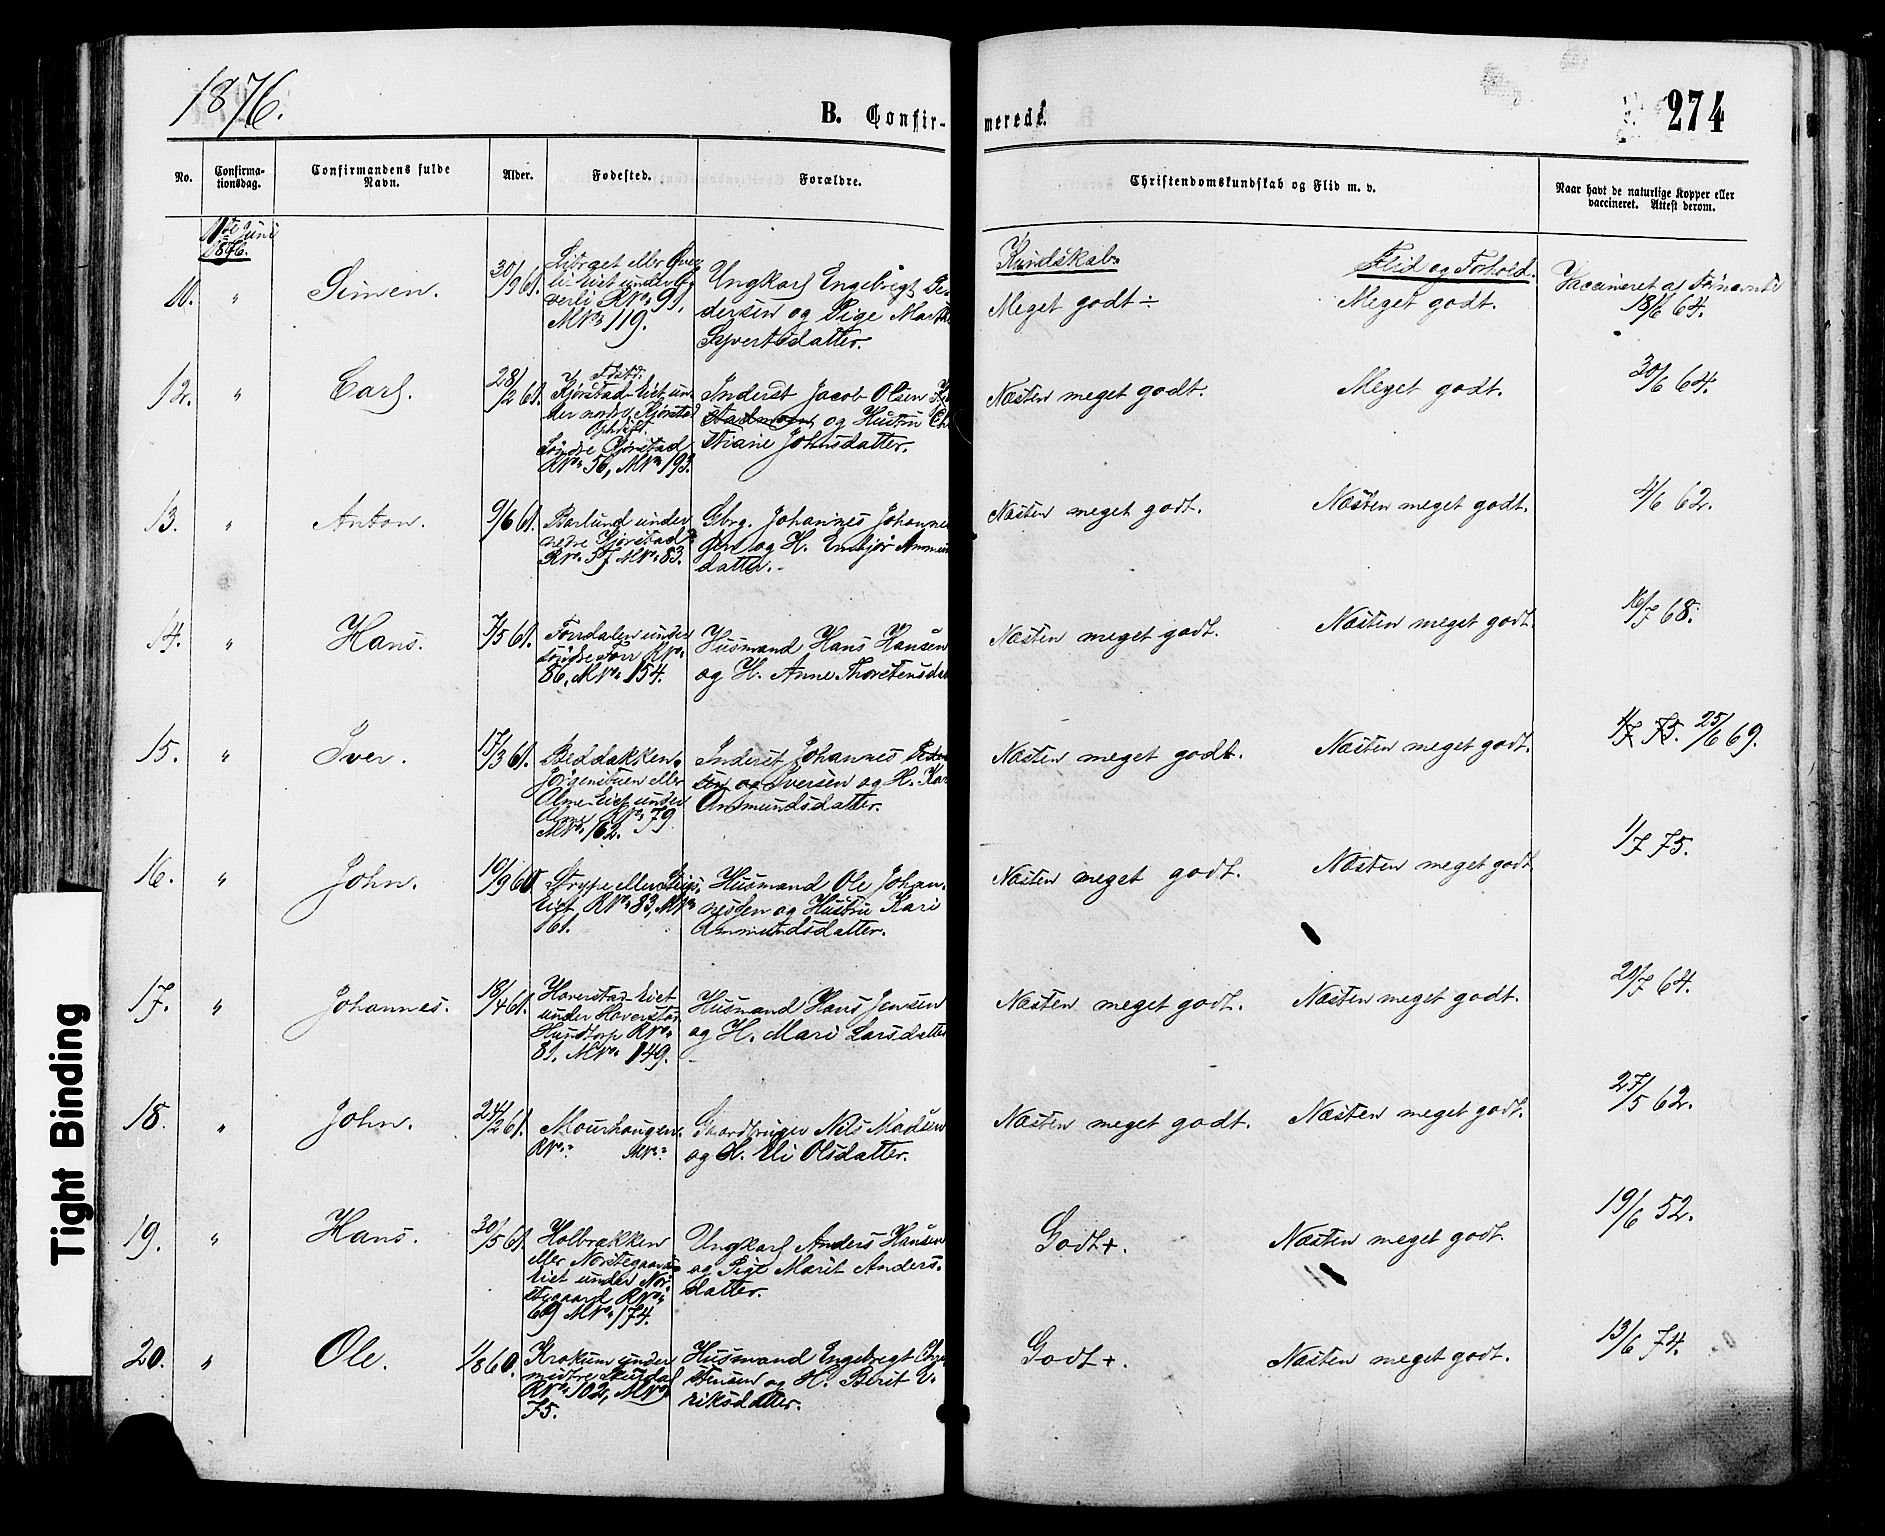 1876.
B. Confir-
merede.
274
No.
Confirma-
tionsdag.
Confirmandens fulde
Navn.
Alder.
Fødested.
Forældre.
Christendomskundskab og Flid m. v.
Naar havt de naturlige Kopper eller
vaccineret. Attest derom.
11te Juni
1876.
Kundskab.
Flid og Forhold.
11. " Simen. 30/9 61.
eller
Eiet under
verli RNo 91,
MNo 119.
Ungkarl Engebrigt Pe-
dersen og Pige Marit
Syvertsdatter.
Meget godt ÷
Meget godt.
Vaccineret af
18/6 64.
12. " Carl. 28/2 61.
Fdstd.
Kjørstad-Eiet un-
der nordre Kjørstad
Søndre Kjørstad
RNo 56, MNo 193.
Inderst Jacob Olsen
og Hustru Chri
stiane Johnsdatter.
Næsten meget godt.
Meget godt.
30/6 64.
13. " Anton. 9/6 61.
Barlund under
nedre Kjørstad
RNo 57 MNo 83.
Gbrg. Johannes Johanne
sen og H. Embjør Ammun
datter.
Næsten meget godt.
Næsten meget godt.
4/6 62.
14. " Hans. 7/5 61.
Forrdalen under
søndre Forr RNo
86, MNo 154.
Husmand Hans Hansen
og H. Anne Thorstensdat
Næsten meget godt.
Næsten meget godt.
16/7 68.
15. " Iver. 17/3 61.
Beddakken.
Jørgenstuen eller
Olme-Eiet under
Olme RNo 79
MNo 162.
Inderst Johannes Peder
sen og Iversen og H. Kari
Ammundsdatter.
Næsten meget godt.
Næsten meget godt.
1/7 75. 25/6 69.
16. " John. 10/9 60
Strype eller
Eiet RNo 83, MNo
161.
Husmand Ole Johan-
nesden og Hustru Kari
Ammundsdatter.
Næsten meget godt.
Næsten meget godt
1/7 75.
17. " Johannes. 18/4 61.
Haverstad-Eiet
under Haverstad
Hundtorp RNo
81. MNo 149.
Husmand Hans Jensen
og H. Mari Larsdatter
Næsten meget godt.
Næsten meget godt.
20/7 64.
18. " John. 24/2 61.
Mourhaugen.
RNo MNo
Gaardbruger Nils Madsen
og H. Eli Olsdatter.
Næsten meget godt.
Næsten meget godt.
27/5 62.
19. " Hans. 30/5 61.
Holbrækken
eller Norstegaard-
Eiet under Nor-
stegaard RNo
69 MNo 174.
Ungkarl Anders Hansen
og Pige Marit Anders-
datter.
Godt+.
Næsten meget godt
19/6 52.
20. " Ole. 1/8 60.
Krokum under
midtre Skurdal
RNo 102, MNo
75.
Husmand Engebregt Chri
stensen og H. Berit U-
riksdatter.
Godt+.
Næsten meget godt.
13/6 74.
Tight Binding